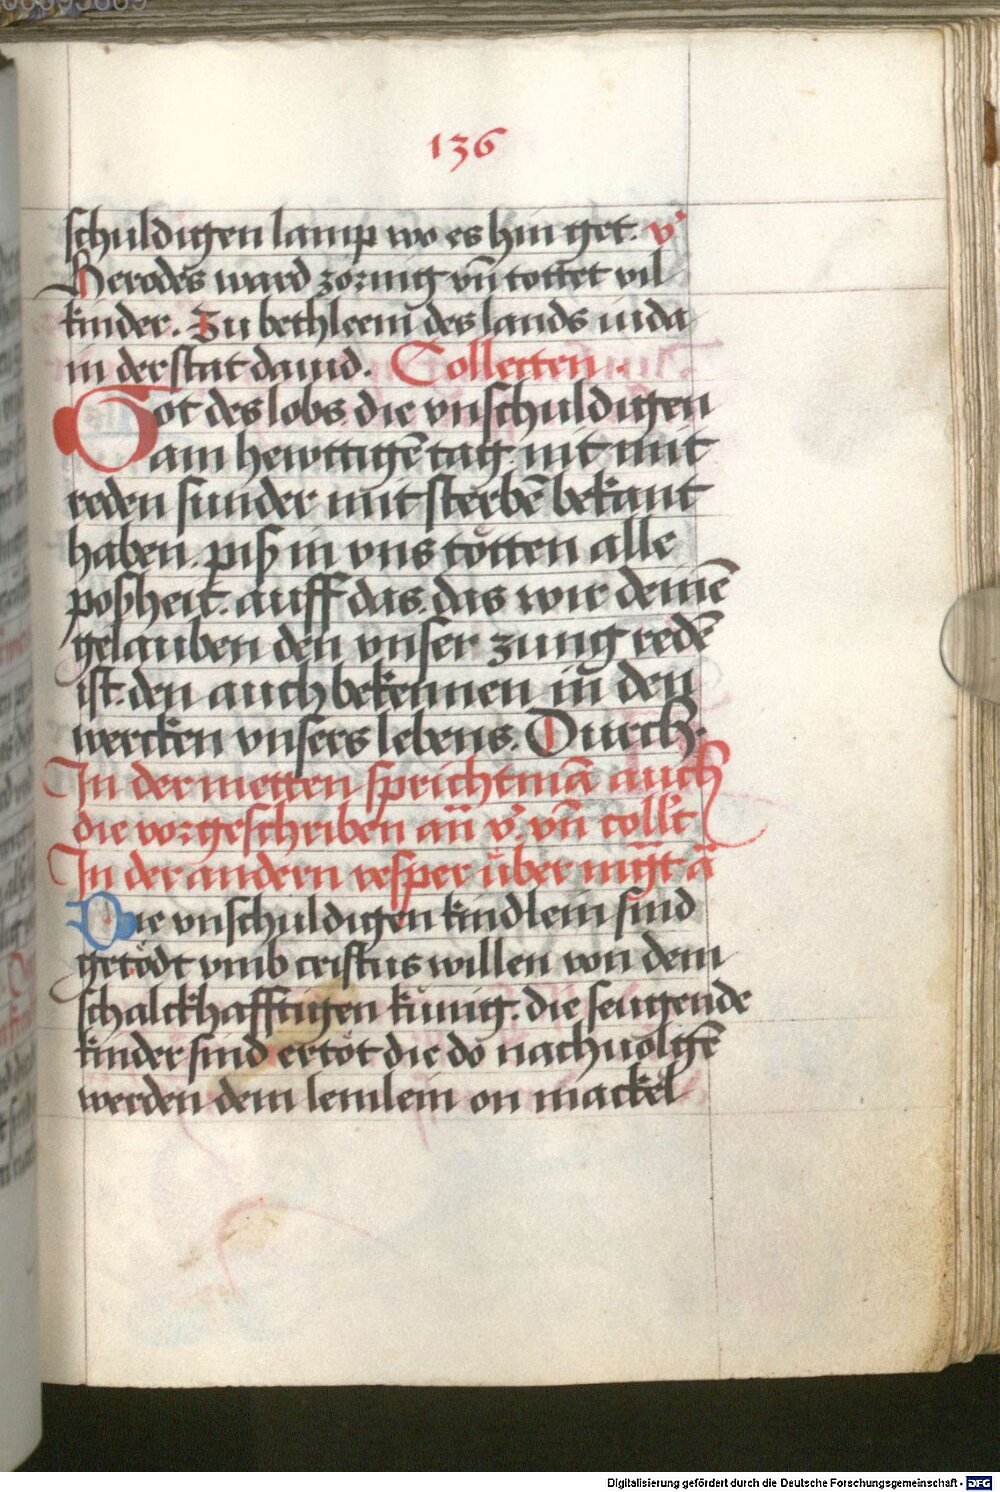 136
schuldigen lamp wo es hin get. v̓
Herodes ward zornig vn̄ tottet vil
kinder. Zu bethleem des lands iuda
in der stat dauid. Collecten.
Got des lobs. die vnschuldigen
am hewttigē tag. nit mit
reden sunder mit sterbē bekant
haben. piß in vns tötten alle
poßheit. auff das. das wir deinē
gelauben den vnser zung redē
ist. den auch bekennen in den
wercken vnsers lebens. Durch.
In der metten spricht mā auch
die vorgeschriben an̄ v̓. vn̄ coll̄t
In der andern vesper über mgt̄ ā
Die vnschuldigen kindlein sind
getödt vmb cristus willen von dem
schalckhafftigen künig. die seugende
kinder sind ertöt die do nachuolgē
werden dem lemlein on mackel
Digitalisierung gefördert durch die Deutsche Forschungsgemeinschaft - DFG